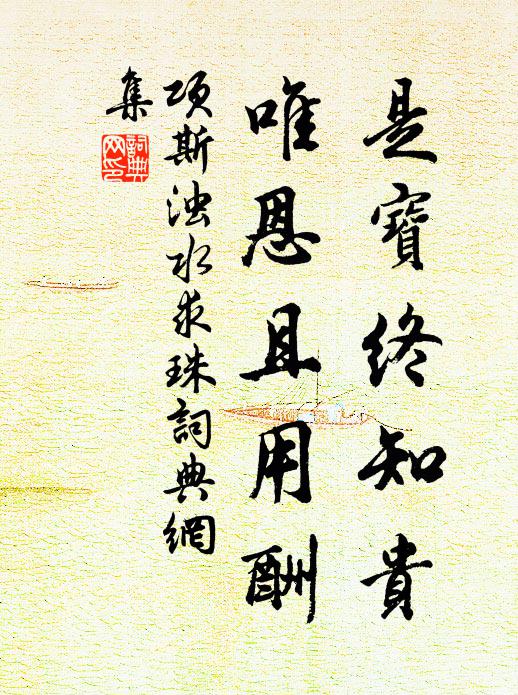 是寶終知貴
唯恩且用酬
項斯浊水求珠詞典網
集
詞典
网印